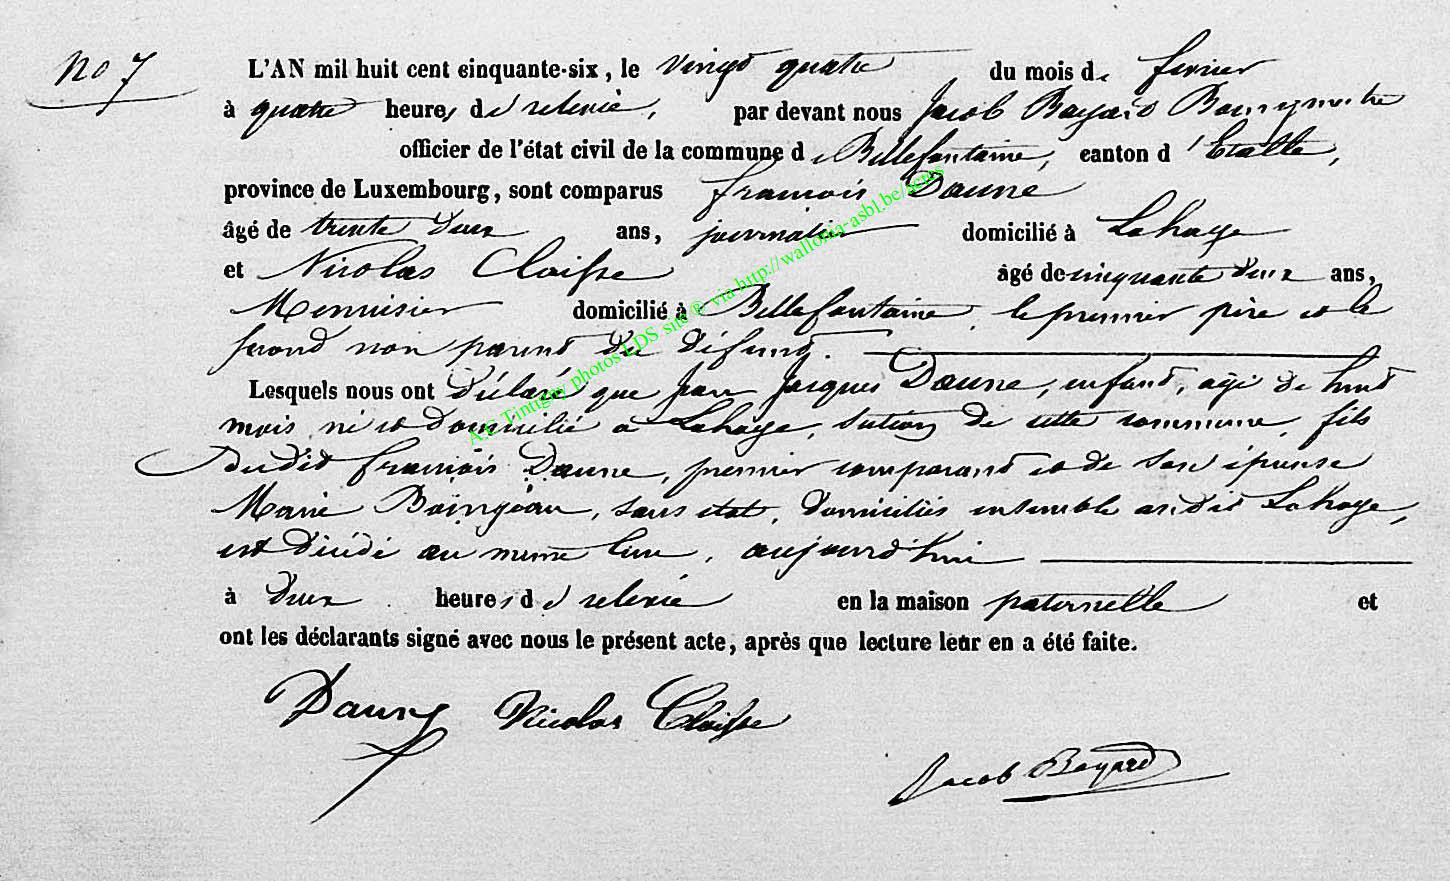 No 7
L'AN mil huit cent cinquante-six, le vingt quatre du mois de fevrier
à quatre heures de relevée, par devant nous Jacob Bayard Bourgmestre
officier de l'état civil de la commune de Bellefontaine, canton d'Etalle,
province de Luxembourg, sont comparus François Daune
âgé de trente deux ans, journalier domicilié à Lahage
et Nicolas Claisse âgé de cinquante deux ans,
Menuisier domicilié à Bellefontaine, le premier père et le
second non parent du défunt.
Lesquels nous ont déclaré que Jean Jacques Daune, enfant, agé de huit
mois, né et domicilié a Lahage, section de cette commune, fils
dudit François Daune, premier comparant et de son épouse
Marie, sans etat, domiciliés ensemble audit Lahage,
est décédé au meme lieu, aujourd'hui
à deux heures de relevée en la maison paternelle et
ont les déclarants signé avec nous le présent acte, après que lecture leur en a été faite.
Daune Nicolas Claisse
Jacob Bayard
A.C. Tintigny photos LDS site ® via http://wallonia-asbl.be/actes